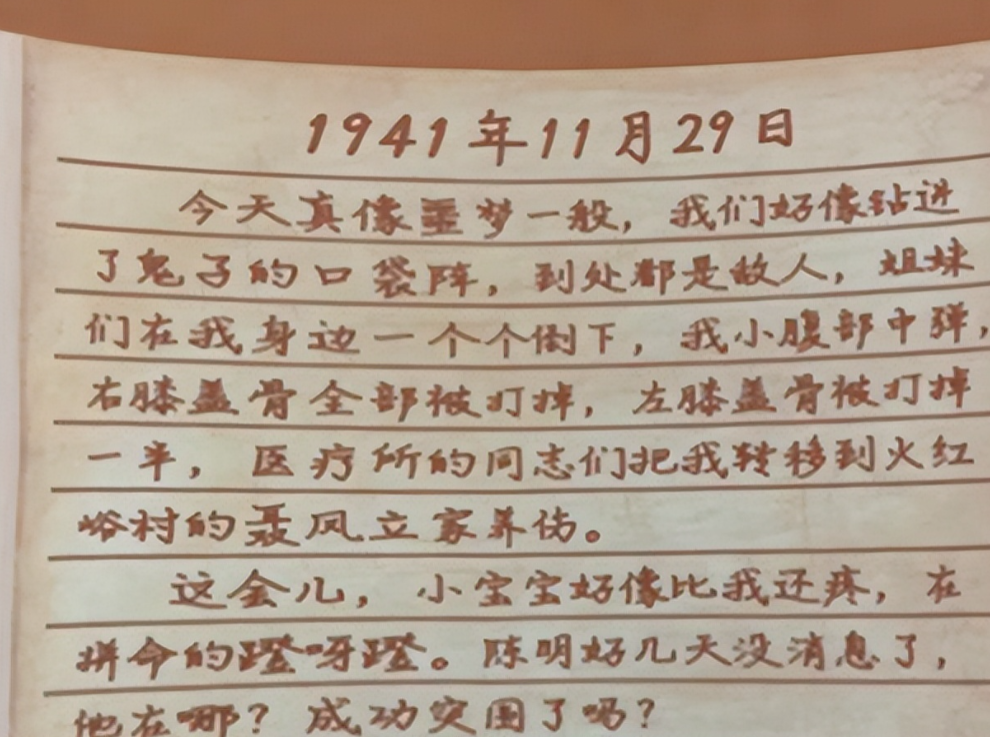 1941年11月29日
今天真像噩梦一般，我们好像钻进
了鬼子的口袋阵，到处都是敌人，姐妹
们在我身边一个个倒下，我小腹部中弹，
右膝盖骨全部被打掉，左膝盖骨被打掉
一半，医疗所的同志们把我转移到火红
峪村的聂凤立家养伤。
这会儿，小宝宝好像比我还疼，在
拼命的蹬呀蹬。陈明好几天没消息了，
他在哪？成功突围了吗？